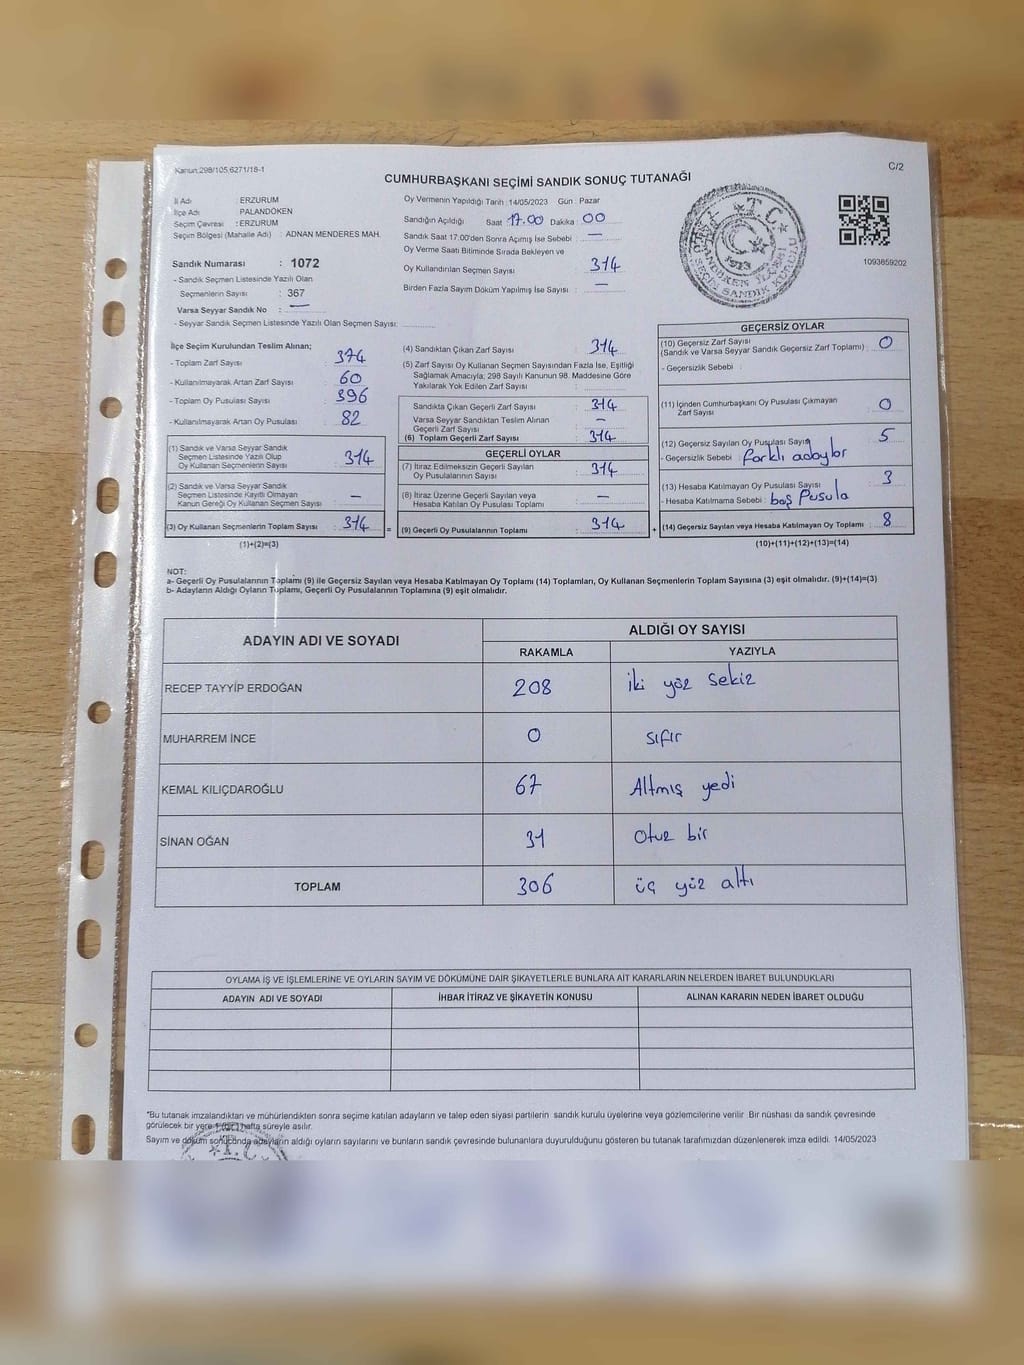 Kanun:298/105,6271/18-1
C/2
CUMHURBAŞKANI SEÇİMİ SANDIK SONUÇ TUTANAĞI
İl Adı : ERZURUM
İlçe Adı : PALANDÖKEN
Seçim Çevresi : ERZURUM
Seçim Bölgesi (Mahalle Adı) : ADNAN MENDERES MAH.
Sandık Numarası : 1072
- Sandık Seçmen Listesinde Yazılı Olan
Seçmenlerin Sayısı : 367
Varsa Seyyar Sandık No : —
- Seyyar Sandık Seçmen Listesinde Yazılı Olan Seçmen Sayısı:
Oy Vermenin Yapıldığı Tarih : 14/05/2023 Gün : Pazar
Sandığın Açıldığı Saat 17.00 Dakika : 00
Sandık Saat 17:00'den Sonra Açımış İse Sebebi : —
Oy Verme Saati Bitiminde Sırada Bekleyen ve
Oy Kullandırılan Seçmen Sayısı : 314
Birden Fazla Sayım Döküm Yapılmış İse Sayısı : —
T.C.
1923
1093659202
İlçe Seçim Kurulundan Teslim Alınan;
- Toplam Zarf Sayısı : 374
- Kullanılmayarak Artan Zarf Sayısı : 60
- Toplam Oy Pusulası Sayısı : 396
- Kullanılmayarak Artan Oy Pusulası : 82
(1) Sandık ve Varsa Seyyar Sandık
Seçmen Listesinde Yazılı Olup
Oy Kullanan Seçmenlerin Sayısı : 314
(2) Sandık ve Varsa Seyyar Sandık
Seçmen Listesinde Kayıtlı Olmayan
Kanun Gereği Oy Kullanan Seçmen Sayısı : —
(3) Oy Kullanan Seçmenlerin Toplam Sayısı : 314 =
(1)+(2)=(3)
(4) Sandıktan Çıkan Zarf Sayısı : 314
(5) Zarf Sayısı Oy Kullanan Seçmen Sayısından Fazla İse, Eşitliği
Sağlamak Amacıyla; 298 Sayılı Kanunun 98. Maddesine Göre
Yakılarak Yok Edilen Zarf Sayısı :
Sandıkta Çıkan Geçerli Zarf Sayısı : 314
Varsa Seyyar Sandıktan Teslim Alınan
Geçerli Zarf Sayısı : —
(6) Toplam Geçerli Zarf Sayısı : 314
GEÇERLİ OYLAR
(7) İtiraz Edilmeksizin Geçerli Sayılan
Oy Pusulasının Sayısı : 314
(8) İtiraz Üzerine Geçerli Sayılan veya
Hesaba Katılan Oy Pusulası Toplamı : —
(9) Geçerli Oy Pusulalarının Toplamı : 314 +
GEÇERSİZ OYLAR
(10) Geçersiz Zarf Sayısı
(Sandık ve Varsa Seyyar Sandık Geçersiz Zarf Toplamı) : 0
- Geçersizlik Sebebi :
(11) İçinden Cumhurbaşkanı Oy Pusulası Çıkmayan
Zarf Sayısı : 0
(12) Geçersiz Sayılan Oy Pusulası Sayısı : 5
- Geçersizlik Sebebi : farklı adaylar
(13) Hesaba Katılmayan Oy Pusulası Sayısı : 3
- Hesaba Katılmama Sebebi : boş Pusula
(14) Geçersiz Sayılan veya Hesaba Katılmayan Oy Toplamı : 8
(10)+(11)+(12)+(13)=(14)
NOT:
a- Geçerli Oy Pusulalarının Toplamı (9) ile Geçersiz Sayılan veya Hesaba Katılmayan Oy Toplamı (14) Toplamları, Oy Kullanan Seçmenlerin Toplam Sayısına (3) eşit olmalıdır. (9)+(14)=(3)
b- Adayların Aldığı Oyların Toplamı, Geçerli Oy Pusulalarının Toplamına (9) eşit olmalıdır.
ADAYIN ADI VE SOYADI
ALDIĞI OY SAYISI
RAKAMLA YAZIYLA
RECEP TAYYİP ERDOĞAN 208 iki yüz sekiz
MUHARREM İNCE 0 sıfır
KEMAL KILIÇDAROĞLU 67 Altmış yedi
SİNAN OĞAN 31 Otuz bir
TOPLAM 306 üç yüz altı
OYLAMA İŞ VE İŞLEMLERİNE VE OYLARIN SAYIM VE DÖKÜMÜNE DAİR ŞİKAYETLERLE BUNLARA AİT KARARLARIN NELERDEN İBARET BULUNDUKLARI
ADAYIN ADI VE SOYADI İHBAR İTİRAZ VE ŞİKAYETİN KONUSU ALINAN KARARIN NEDEN İBARET OLDUĞU
"Bu tutanak imzalandıktan ve mühürlendikten sonra seçime katılan adayların ve talep eden siyasi partilerin sandık kurulu üyelerine veya gözlemcilerine verilir. Bir nüshası da sandık çevresinde
görülecek bir yere 1 (bir) hafta süreyle asılır.
Sayım ve döküm sonucunda adayların aldığı oyların sayılarını ve bunların sandık çevresinde bulunanlara duyurulduğunu gösteren bu tutanak tarafımızdan düzenlenerek imza edildi. 14/05/2023
T.C.